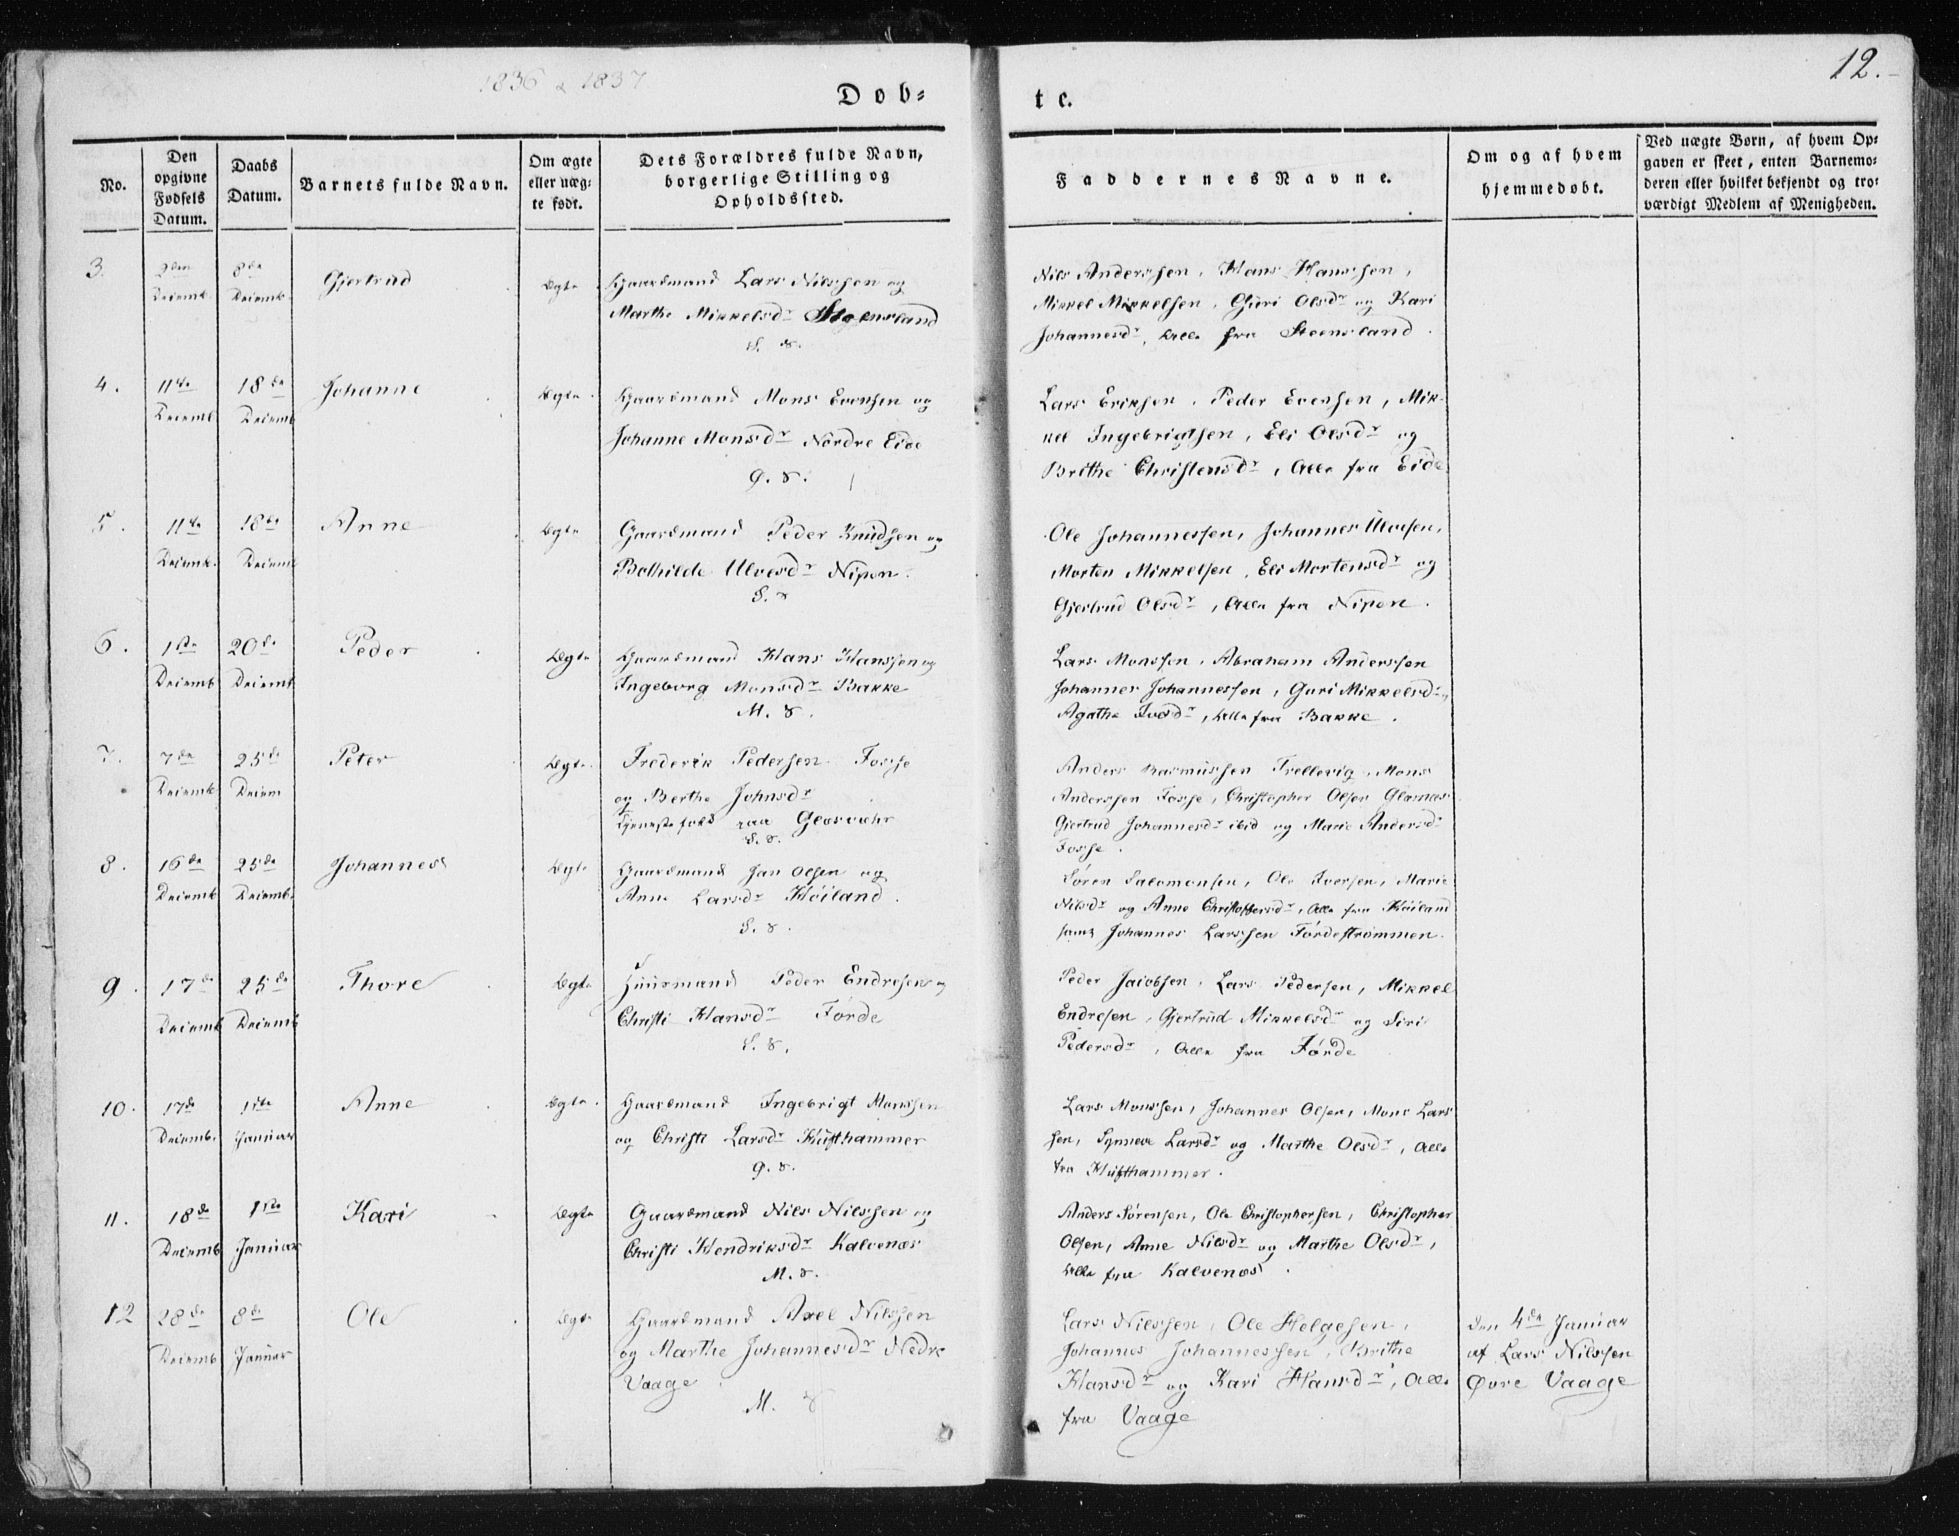 1836 & 1837
12.
Døb-
te.
No.
Den opgivne Fødsels Datum.
Daabs Datum.
Barnets fulde Navn.
Om ægte eller uæg-te født.
Dets Forældres fulde Navn, borgerlige Stilling og Opholdssted.
Faddernes Navne.
Om og af hvem hjemmedøbt.
Ved uægte Børn, af hvem Op-
gaven er skeet, enten Barnemo-
deren eller hvilket bekjendt og tro-
værdigt Medlem af Menigheden.
3.
2den Decemb.
8de Decemb.
Gjertrud
Ægte
Gaardmand Lars Nilssen og
Marthe Mikkelsdr Steensland
S. S.
Nils Anderssen, Hans Hanssen,
Mikkel Mikkelsen, Guri Olsdr og Kari
Johannesdr, Alle fra Steensland.
4.
11te Decemb
18de Decemb
Johanne
Ægte.
Gaardmand Mons Evensen og
Johanne Monsdr Nordre Eide
G. S.
Lars Eriksen, Peder Evensen, Mik-
kel Ingebrigtsen, Eli Olsdr og
Brithe Christensdr, Alle fra Eide
5.
11te Decemb.
18de Decemb
Anne
Ægte
Gaardmand Peder Knudsen og
Bothilde Ulvesdr Nipen.
S. S
Ole Johannessen, Johannes Ulvesen,
Morten Mikkelsen, Eli Mortensdr og
Gjertrud Olsdr, Alle fra Nipen.
6.
1ste Decemb
20de Decemb
Peder
Ægte
Gaardmand Hans Hanssen og
Ingeborg Monsdr Bakke
M. S.
Lars Monssen, Abraham Anderssen
Johannes Johannessen, Guri Mikkelsdr,
Agathe Iversdr, Alle fra Bakke.
7.
7de Decemb
25de Decem
Peter
Ægte.
Frederik Pedersen Fosse
og Berthe Johnsdr
Tjenestefolk paa
S. S.
Anders Rasmussen Trellevig, Mons
Anderssen Fosse, Christopher Olsen
Gjertrud Johannesdr ibid og Marie Andersdr
Fosse.
8.
16de Decemb
25de Decemb.
Johannes
Ægte
Gaardmand Jan Olsen og
Anne Larsdr Høiland.
S. S.
Søren Salomonsen, Ole Iversen, Marie
Nilsdr og Anne Christoffersdr, Alle fra Høiland
samt Johannes Larssen Førdestrømmen.
9.
17de Decemb
25de Decemb
Thore
Ægte
Huusmand Peder Endresen og
Christi Hansdr Førde
S. S.
Peder Jacobsen, Lars Pedersen, Mikkel
Endresen, Gjertrud Mikkelsdr og Siri
Pedersdr, Alle fra Førde
10.
17de Decemb.
1ste Januar
Anne
Ægte.
Gaardmand Ingebrigt Monssen
og Christi Larsdr Hufthammer
G. S.
Lars Monssen, Johannes Olsen, Mons Lars
sen, Synneve Larsdr og Marthe Olsdr, Alle
fra Hufthammer.
11.
18de Decemb
1ste Januar
Kari
Ægte
Gaardmand Nils Nilssen og
Christi Hendriksdr Kalvenæs
M. S.
Anders Sørensen, Ole Christophersen, Christopher
Olsen, Anne Nilsdr og Marthe Olsdr,
Alle fra Kalvenæs.
12
28de Decemb
8de Januar
Ole
Ægte
Gaardmand Axel Nilssen
og Marthe Johannesdr Nedre
Vaage.
M. S
Lars Nilssen, Ole Helgesen,
Johannes Johannessen, Brithe
Hansdr og Kari Hansdr, Alle
fra Vaage
Den 4de Januar
af Lars Nilssen
Øvre Vaage